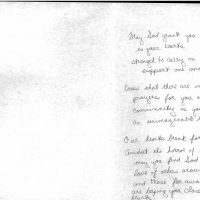 May God grant you
in your hearts,
strength to carry on
support and
Know that there are
prayers for you
community as you
an unimaginable
Our hearts break for
Amidst the horror of
may you find God
love of others around
and those far away
are keeping you close
hearts!